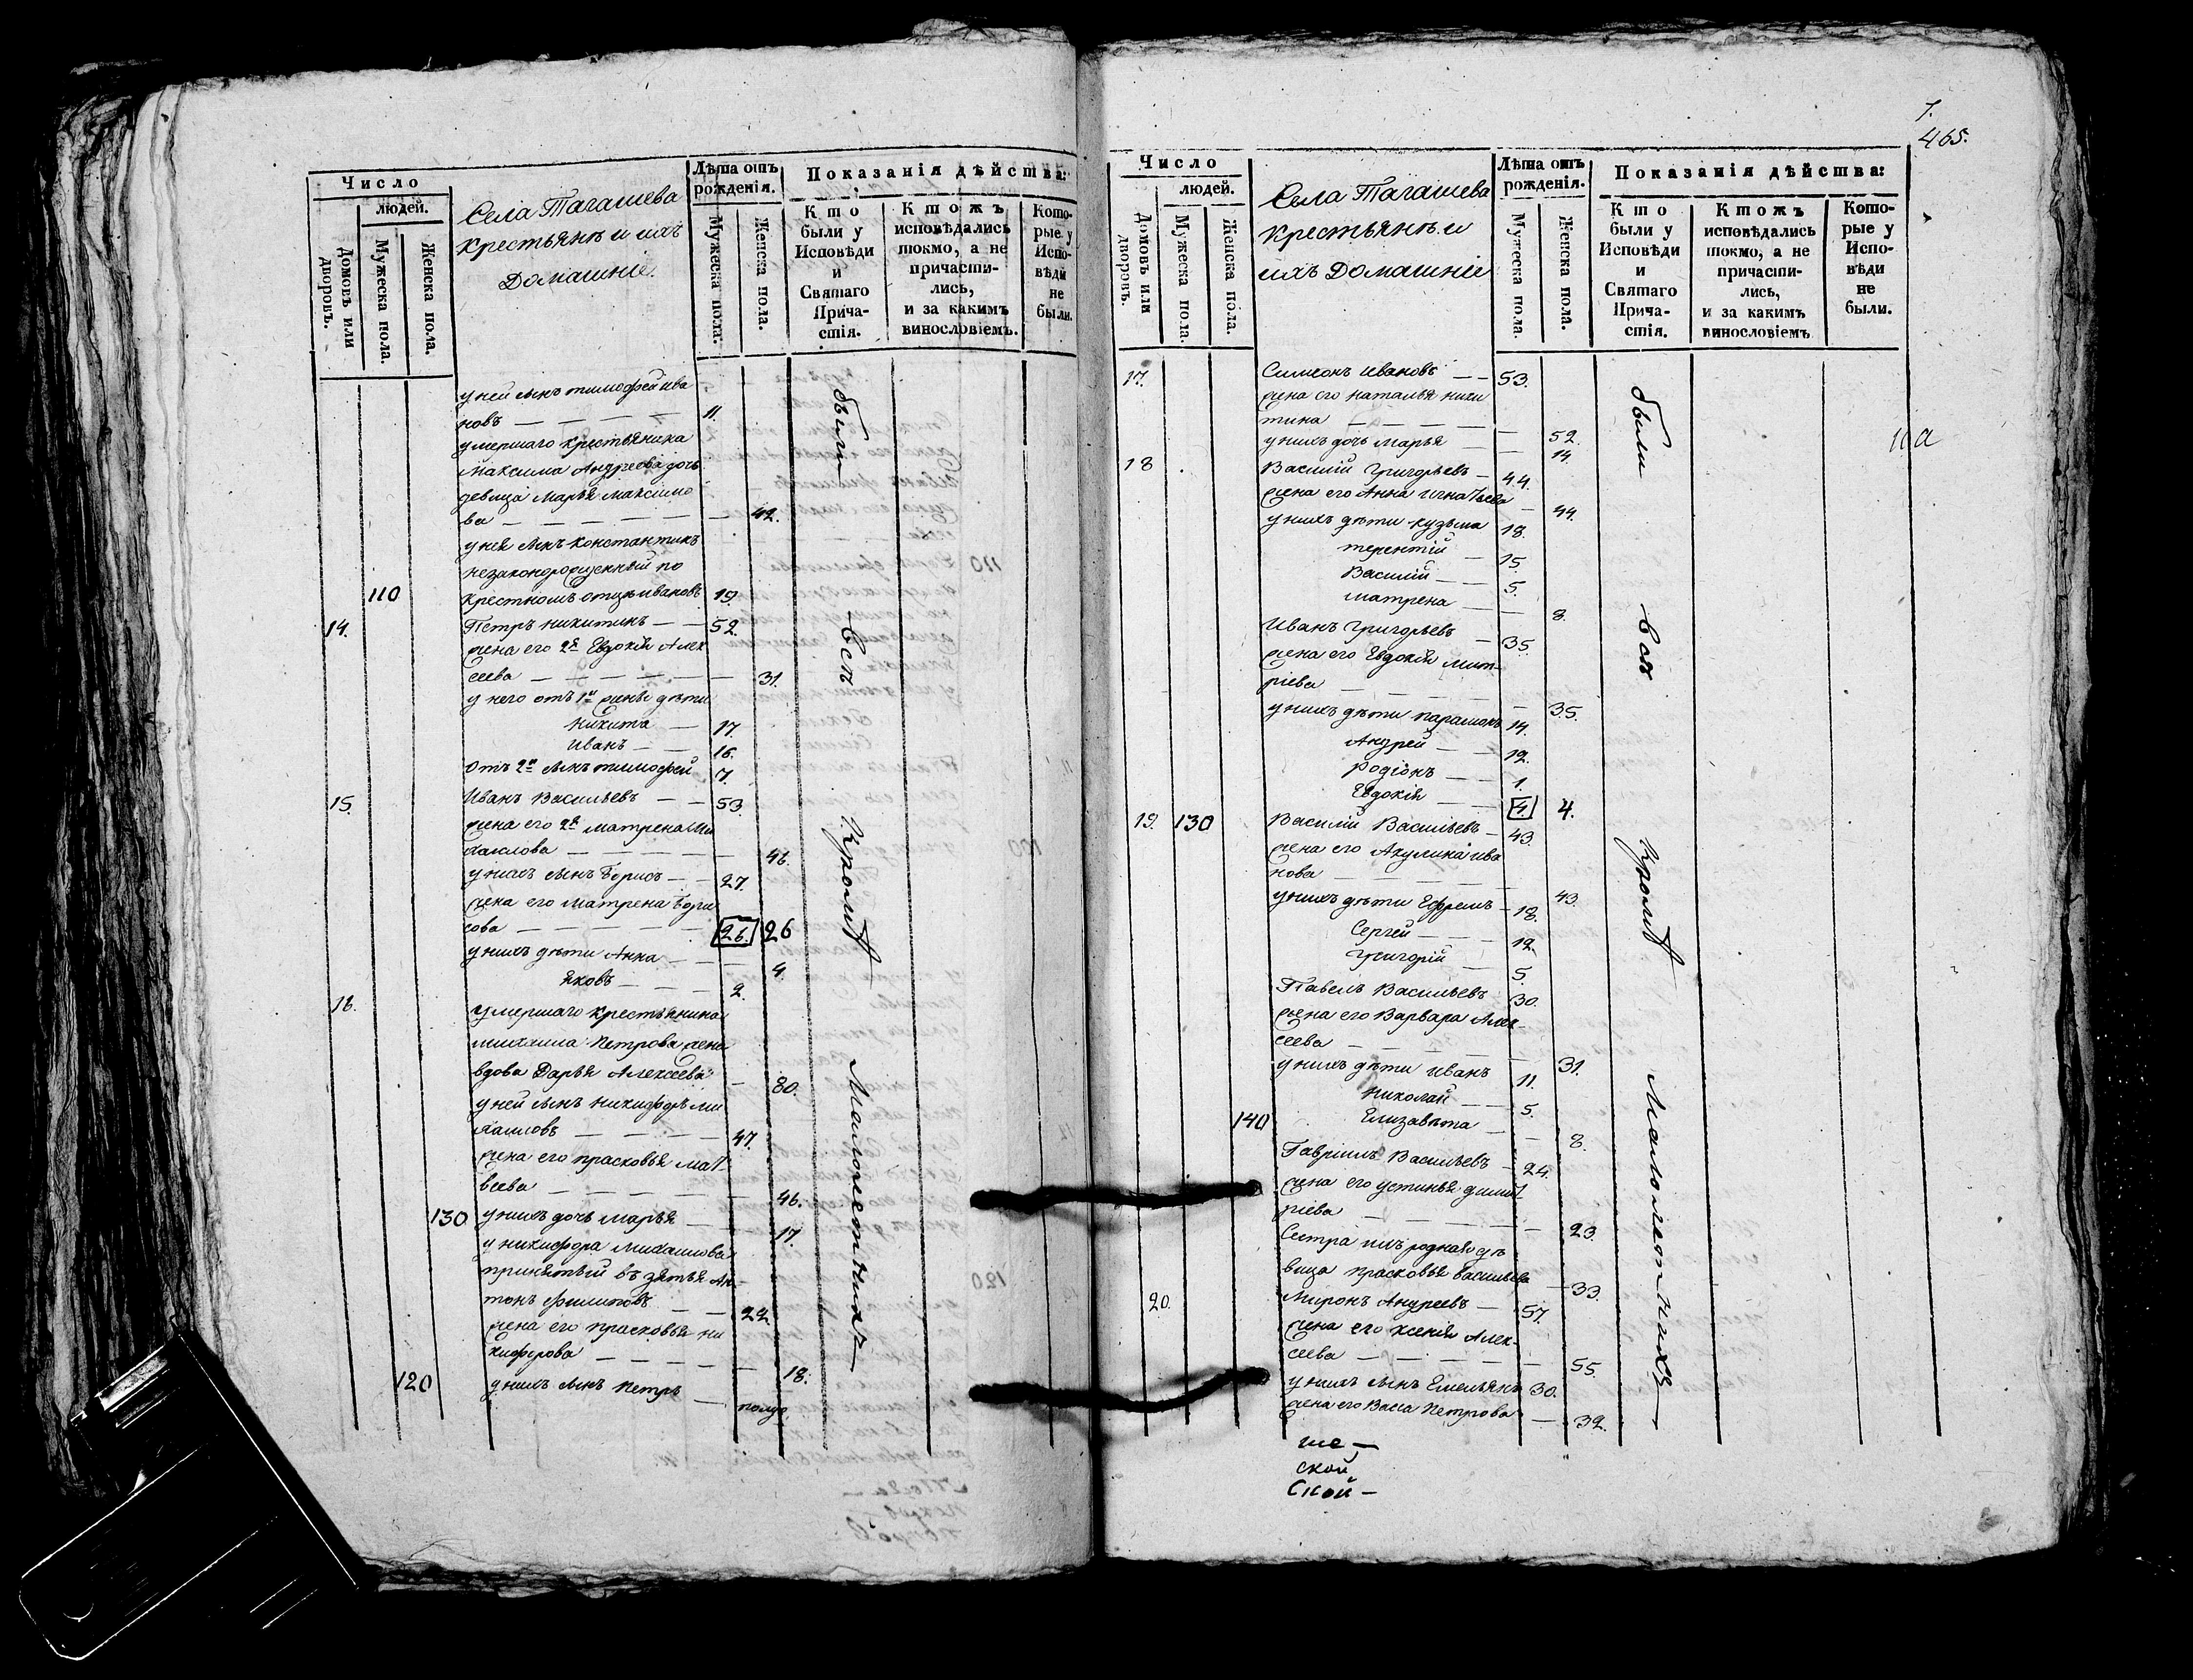 Число
людей.
Домовъ или дворовъ.
Мужеска пола.
Женска пола.
Села Тагашева
крестьянъ и ихъ
домашніе.
Лѣта отъ рожденія.
Мужеска пола.
Женска пола.
Показанія дѣйства:
Кто были у Исповѣди и Святаго Прича-стія.
Ктожъ исповѣдались токмо, а не причасти-лись, и за какимъ винословіемъ.
Кото-рые у Испо-вѣди не были.
у ней сынъ тимофей ива
новъ — — — — 11
умершаго крестьянина
максима Андреева дочь
девица Марья максимо
ва — — — — — 42.
у нея сынъ константинъ
незаконорожденный по
110 крестномъ отцѣ ивановъ 19.
14. Петръ никитинъ — — 52.
жена его 2я Евдокія Алек
сеева — — — — — 31.
у него отъ 1й жены дѣти
Никита — 17.
иванъ — — 16.
отъ 2й сынъ тимофей 7.
15. Иванъ Васильевъ — — 53.
жена его 2я матрена Ми
хайлова — — — — — 46.
у нихъ сынъ Борисъ — — 27.
жена его матрена Бори
сова — — — — — 26. 26
у нихъ дѣти Анна — — — 4.
Яковъ — — — 2.
16. умершаго крестьянина
михаила Петрова жена
вдова Дарья Алексеева — 80.
у ней сынъ никифоръ ми
хаиловъ — — — — 47.
жена его прасковья мат
веева — — — — — 46.
130 у нихъ дочь марья — — 17.
у никифора михаилова
принятый въ зятья Ан-
тонъ Филиповъ — — 22.
жена его прасковья ни
кифорова — — — — — 18.
120 у нихъ сынъ петръ — полго.
были
Всѣ
Кромѣ
Малолетнихъ
7.
465.
Число
людей.
Домовъ или дворовъ.
Мужеска пола.
Женска пола.
Села Тагашева
крестьянъ и
ихъ домашніе
Лѣта отъ рожденія.
Мужеска пола.
Женска пола.
Показанія дѣйства:
Кто были у Исповѣди и Святаго Прича-стія.
Ктожъ исповѣдались токмо, а не причасти-лись, и за какимъ винословіемъ
Кото-рые у Испо-вѣди не были.
17. Симеонъ ивановъ — — 53.
жена его наталья ники
тина — — — — — 52.
у нихъ дочь марья — — 14.
18 Василій григорьевъ — 44.
жена его Анна игнатьева — 44.
у нихъ дѣти кузьма 18.
терентій — 15.
Василій — — 5.
матрена — — 8.
Иванъ григорьевъ — 35.
жена его Евдокія мит-
ріева — — — — — 35.
у нихъ дѣти парамонъ 14.
Андрей — — 12.
родіонъ — — 1.
Евдокія — — 4. 4.
19. 130 Василій Васильевъ — 43.
жена его Акулина ива
нова — — — — — 43.
у нихъ дѣти Ефремъ — 18.
Сергей — — — 12.
григорій — 5.
Павелъ Васильевъ 30.
жена его Варвара Алек-
сеева — — — — — 31.
у нихъ дѣти иванъ 11.
николай — — 5.
140 Елизавета — — 8.
Гавріилъ Васильевъ — 24.
жена его устинья димит
ріева — — — — — 23.
Сестра ихъ родная дѣ
вица прасковья васильева — 33.
20. Миронъ Андреевъ — 57.
жена его ксенія Алек-
сеева — — — — — 55.
у нихъ сынъ Емельянъ 30.
жена его Васса Петрова — 32.
были
Всѣ
Кромѣ
Малолетнихъ
ше —
ской
Ской —